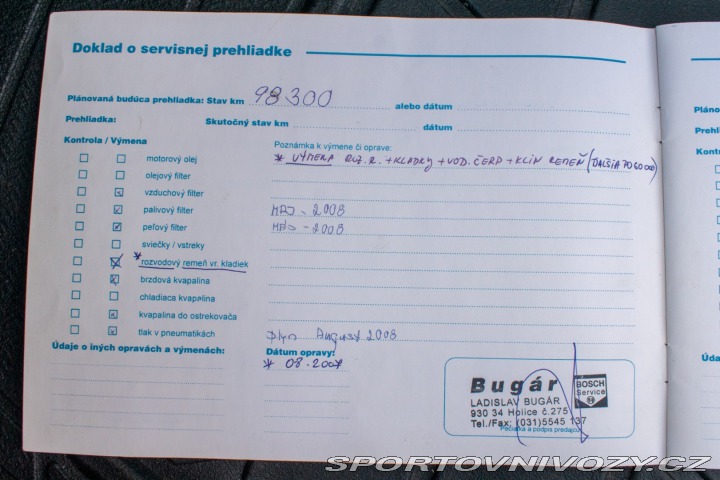 Doklad o servisnej prehliadke
Plánovaná budúca prehliadka: Stav km 98300 alebo dátum
Prehliadka: Skutočný stav km dátum
Kontrola / Výmena
Poznámka k výmene či oprave:
motorový olej
* VÝMENA ROZ. R. + KLADKY + VOD. ČERP + KLIN REMEŇ (ĎALŠIA PO 60 000)
olejový filter
vzduchový filter
palivový filter
MÁJ - 2008
peľový filter
MÁJ - 2008
sviečky / vstreky
* rozvodový remeň vr. kladiek
brzdová kvapalina
chladiaca kvapalina
kvapalina do ostrekovača
tlak v pneumatikách
August 2008
Údaje o iných opravách a výmenách:
Dátum opravy:
* 08.2007
Bugár
LADISLAV BUGÁR
930 34 Holice č.275
Tel./Fax: (031)5545 137
BOSCH
Service
Pečiatka a podpis predajcu
Pláno
Prehl
Kontr
Úda
SPORTOVNIVOZY.CZ